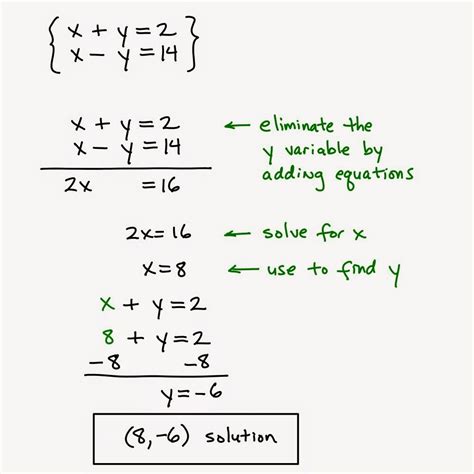 { x + y = 2
x - y = 14 }
x + y = 2 ← eliminate the
x - y = 14 y variable by
2x = 16 adding equations
2x = 16 ← solve for x
x = 8 ← use to find y
x + y = 2
8 + y = 2
-8 -8
y = -6
(8, -6) solution